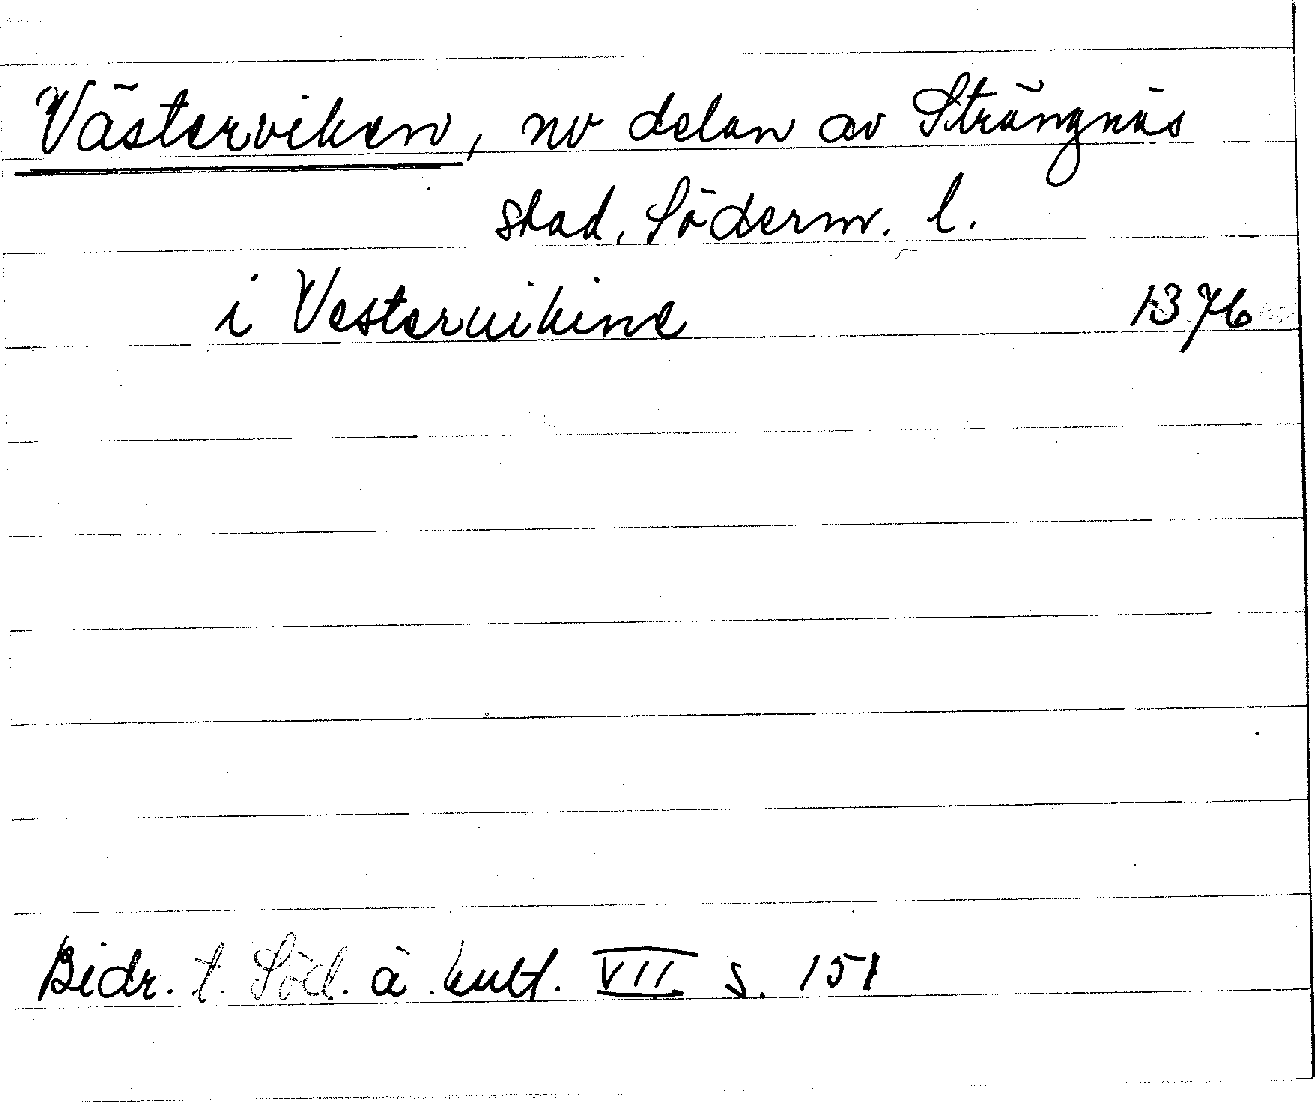 Västerviken, nv delen av Strängnäs
stad, Söderm. l.
i Vesteruikine 1376
Bidr. t. Söd. ä. kult. VII s. 151